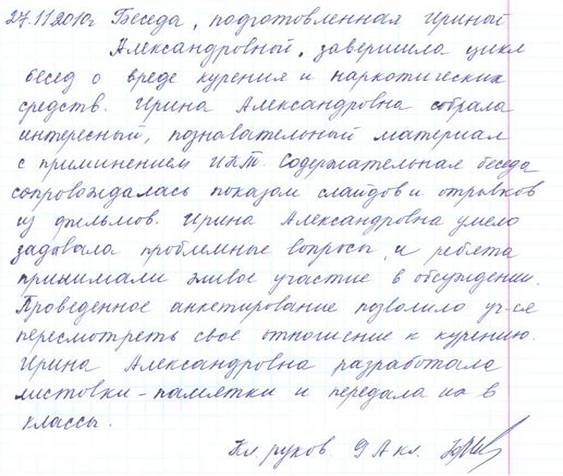 27.11.2010г Беседа, подготовленная Ириной
Александровной, завершила цикл
бесед о вреде курения и наркотических
средств. Ирина Александровна собрала
интересный, познавательный материал
с приминением ИКТ. Содержательная беседа
сопровождалась показом слайдов и отрывков
из фильмов. Ирина Александровна умело
задовала проблемные вопросы, и ребята
принимали живое участие в обсуждении.
Проведенное анкетирование позволило уч-ся
пересмотреть свое отношение к курению.
Ирина Александровна разработала
листовки-памятки и передала их в
классы.
Кл. руков 9 А кл.